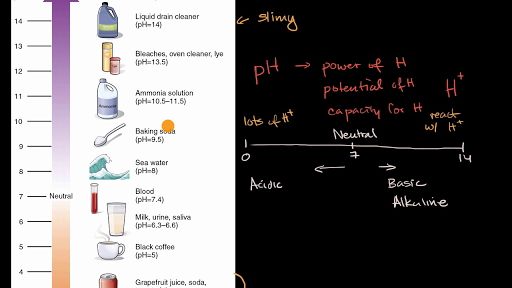 14
13
12
11
10
9
8
7
6
5
4
Neutral
Liquid drain cleaner
(pH=14)
Bleaches, oven cleaner, lye
(pH=13.5)
Ammonia solution
(pH=10.5–11.5)
Ammonia
Baking soda
(pH=9.5)
Sea water
(pH=8)
Blood
(pH=7.4)
Milk, urine, saliva
(pH=6.3–6.6)
Black coffee
(pH=5)
Grapefruit juice, soda,
slimy
pH → power of H
potential of H
capacity for H
H+
lots of H+
react
w/ H+
Neutral
0
7
14
Acidic
Basic
Alkaline